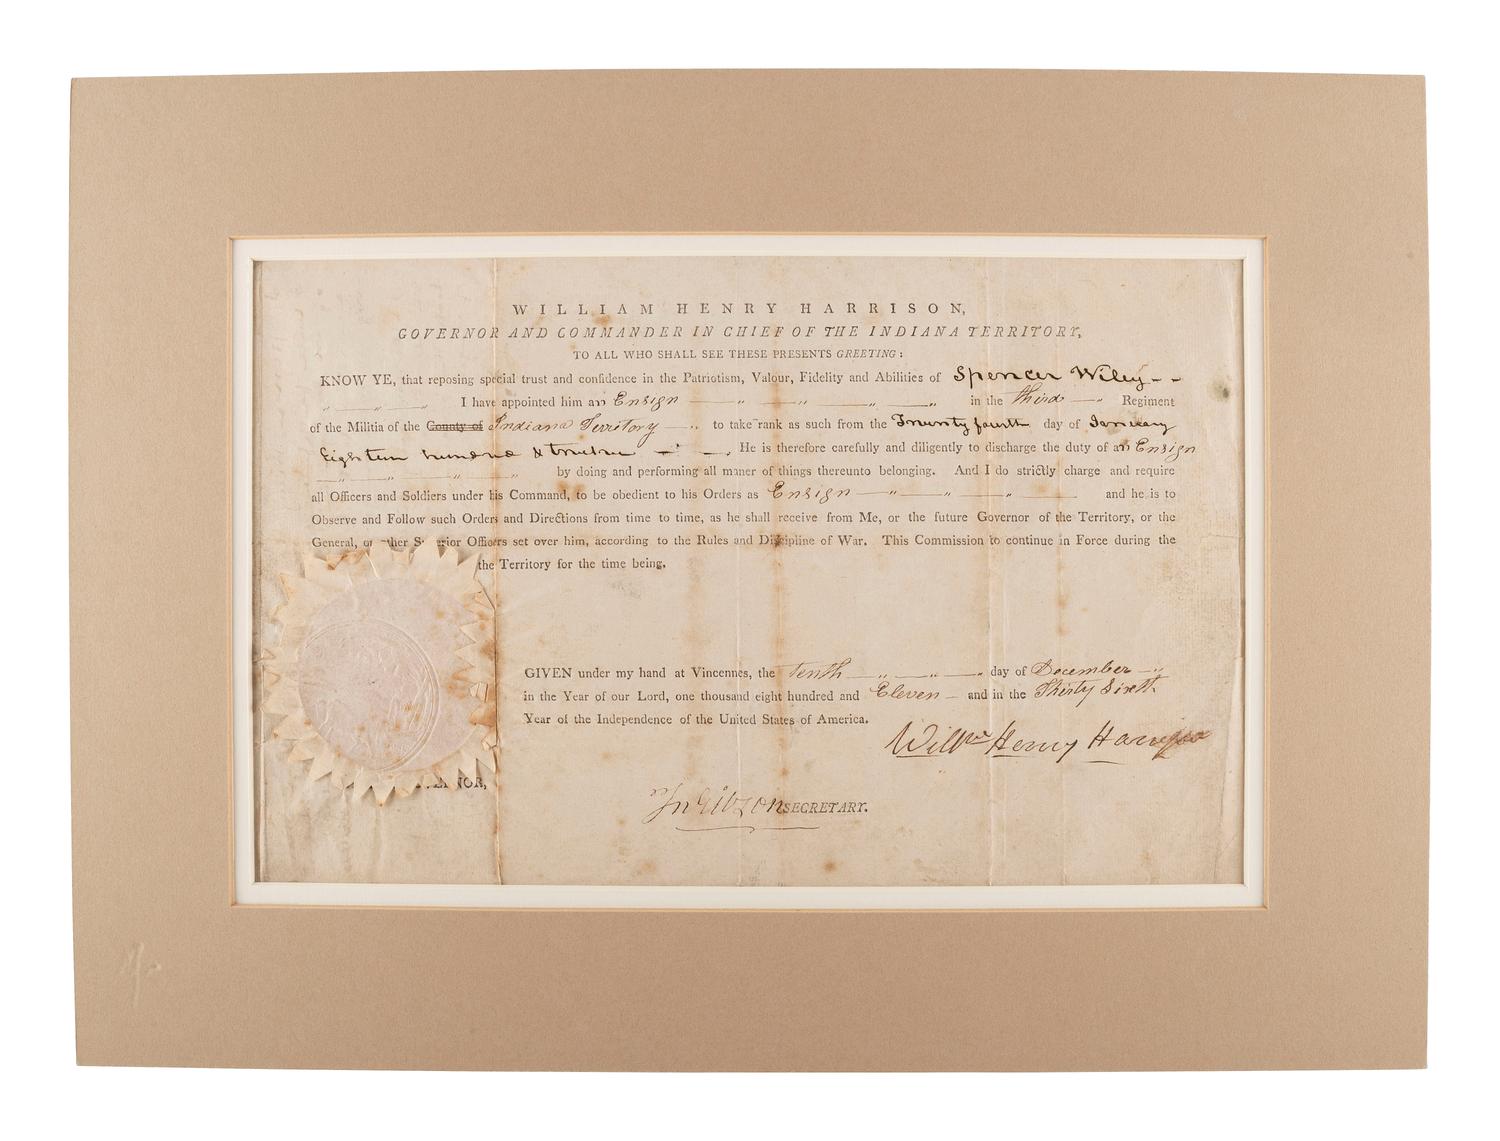 WILLIAM HENRY HARRISON,
GOVERNOR AND COMMANDER IN CHIEF OF THE INDIANA TERRITORY,
TO ALL WHO SHALL SEE THESE PRESENTS GREETING:
KNOW YE, that reposing special trust and confidence in the Patriotism, Valour, Fidelity and Abilities of Spencer Wiley
I have appointed him an Ensign in the third Regiment
of the Militia of the County of Indiana Territory to take rank as such from the Twenty fourth day of January
Eighteen hundred & twelve. He is therefore carefully and diligently to discharge the duty of an Ensign
by doing and performing all maner of things thereunto belonging. And I do strictly charge and require
all Officers and Soldiers under his Command, to be obedient to his Orders as Ensign and he is to
Observe and Follow such Orders and Directions from time to time, as he shall receive from Me, or the future Governor of the Territory, or the
General, or other Superior Officers set over him, according to the Rules and Discipline of War. This Commission to continue in Force during the
the Territory for the time being.
GIVEN under my hand at Vincennes, the tenth day of December
in the Year of our Lord, one thousand eight hundred and Eleven and in the Thirty Sixth
Year of the Independence of the United States of America.
Willm Henry Harrison
NOR,
Jn Gibson SECRETARY.